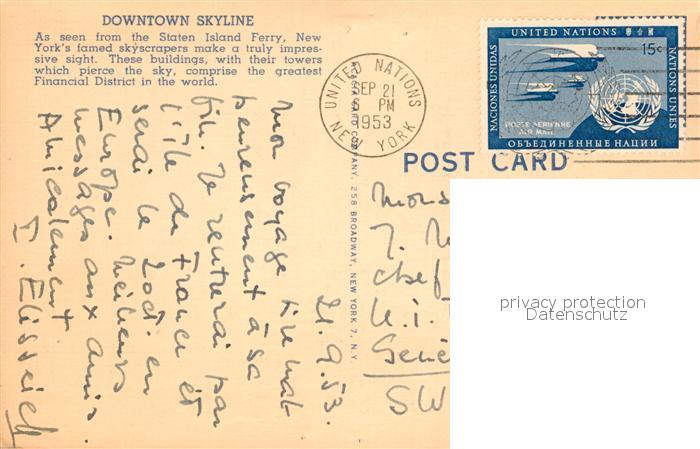 DOWNTOWN SKYLINE
As seen from the Staten Island Ferry, New
York's famed skyscrapers make a truly impres-
sive sight. These buildings, with their towers
which pierce the sky, comprise the greatest
Financial District in the world.
UNITED NATIONS
SEP 21
6 PM
1953
NEW YORK
UNITED NATIONS
15c
NACIONES UNIDAS
NATIONS UNIES
POSTE AERIENNE
AIR MAIL
ОБЪЕДИНЕННЫЕ НАЦИИ
POST CARD
COMPANY, 258 BROADWAY, NEW YORK 7, N.Y.
21.9.53.
Mon voyage tire
heureusement à sa
fin. Je rentrerai par
l'Île de France et
serai le 2 oct. en
Europe. Meilleurs
messages aux amis.
Amicalement
Mons
chef
Genè
SW
privacy protection
Datenschutz